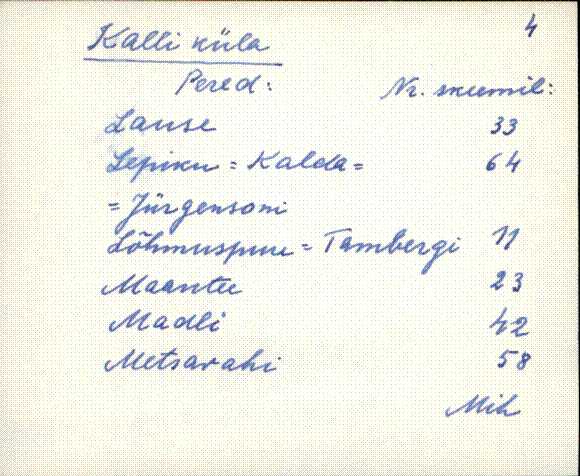 4
Kalli küla
Pered: Nr. skeemil:
Lause 33
Lepiku = Kalda = 64
= Jürgensoni
Lõhmuspuu = Tambergi 11
Maantee 23
Madli 42
Metsavahi 58
Mih